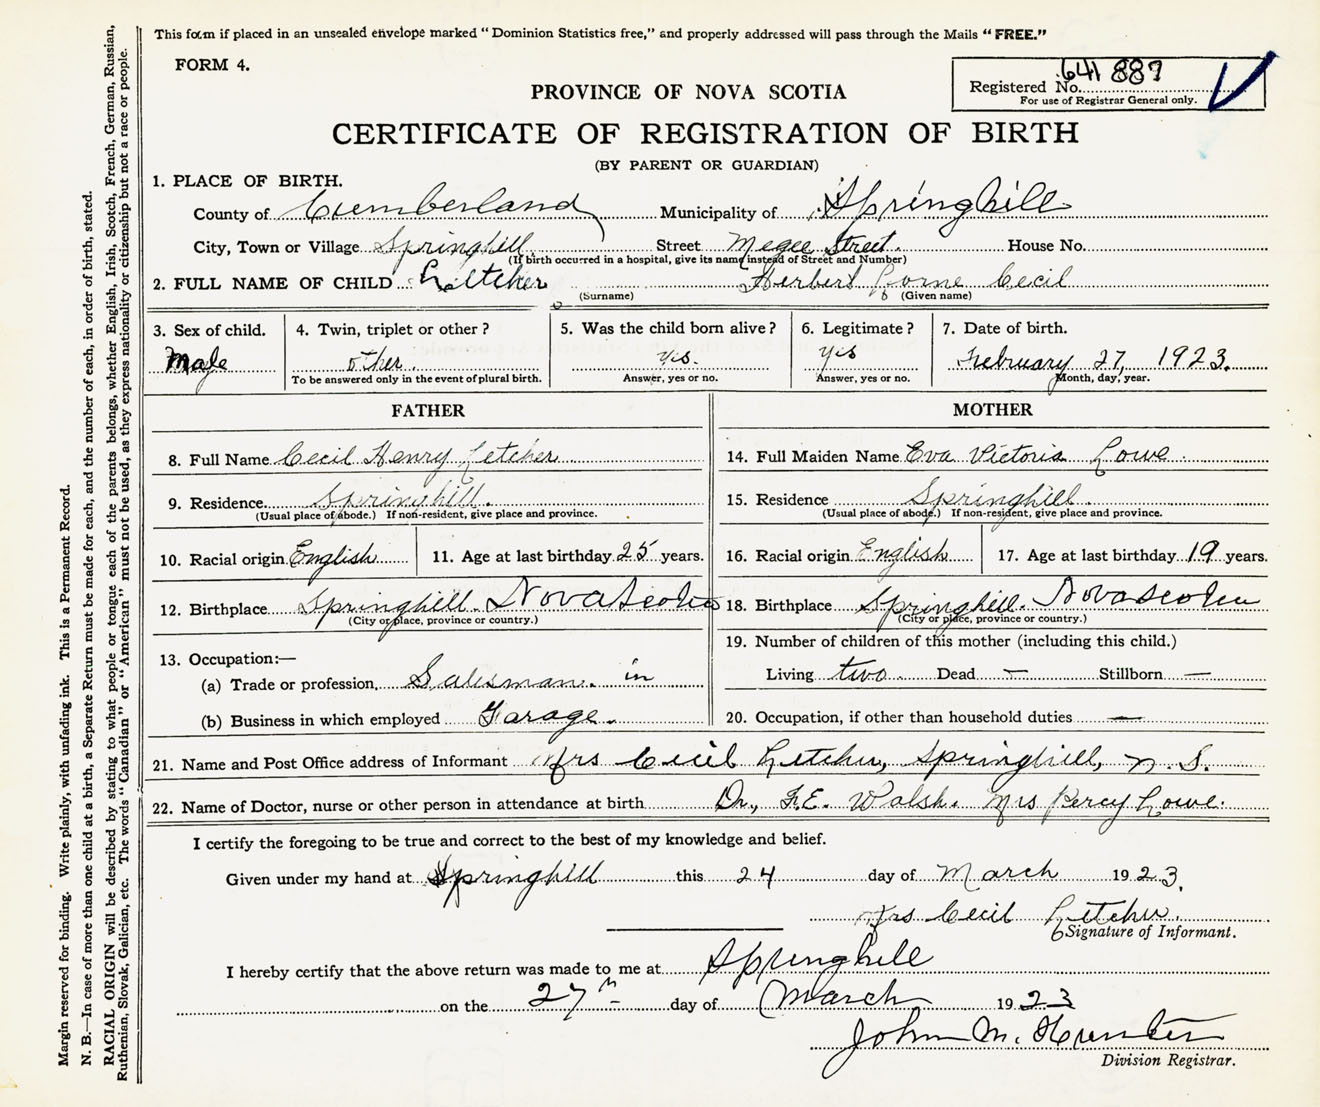 This form if placed in an unsealed envelope marked "Dominion Statistics free," and properly addressed will pass through the Mails "FREE."
FORM 4.
Registered No. 641 887
For use of Registrar General only.
PROVINCE OF NOVA SCOTIA
CERTIFICATE OF REGISTRATION OF BIRTH
(BY PARENT OR GUARDIAN)
1. PLACE OF BIRTH.
County of Cumberland Municipality of Springhill
City, Town or Village Springhill Street Megee Street. House No.
(If birth occurred in a hospital, give its name instead of Street and Number)
2. FULL NAME OF CHILD Letcher Herbert Lorne Cecil
(Surname) (Given name)
3. Sex of child. 4. Twin, triplet or other? 5. Was the child born alive? 6. Legitimate? 7. Date of birth.
Male other. yes. yes February 27, 1923.
To be answered only in the event of plural birth. Answer, yes or no. Answer, yes or no. Month, day, year.
FATHER MOTHER
8. Full Name Cecil Henry Letcher 14. Full Maiden Name Eva Victoria Lowe.
9. Residence Springhill. 15. Residence Springhill.
(Usual place of abode.) If non-resident, give place and province. (Usual place of abode.) If non-resident, give place and province.
10. Racial origin English 11. Age at last birthday 25 years. 16. Racial origin English 17. Age at last birthday 19 years.
12. Birthplace Springhill. Nova Scotia 18. Birthplace Springhill. Nova Scotia
(City or place, province or country.) (City or place, province or country.)
13. Occupation:— 19. Number of children of this mother (including this child.)
(a) Trade or profession. Salesman. in Living two. Dead — Stillborn —
(b) Business in which employed Garage. 20. Occupation, if other than household duties —
21. Name and Post Office address of Informant Mrs Cecil Letcher, Springhill, N.S.
22. Name of Doctor, nurse or other person in attendance at birth Dr., F.E. Walsh. Mrs Percy Lowe.
I certify the foregoing to be true and correct to the best of my knowledge and belief.
Given under my hand at Springhill this 24 day of March 1923.
Mrs Cecil Letcher.
Signature of Informant.
I hereby certify that the above return was made to me at Springhill
on the 27th day of March 1923
John M. Hunter
Division Registrar.
Margin reserved for binding. Write plainly, with unfading ink. This is a Permanent Record.
N. B.—In case of more than one child at a birth, a Separate Return must be made for each, and the number of each, in order of birth, stated.
RACIAL ORIGIN will be described by stating to what people or tongue each of the parents belongs, whether English, Irish, Scotch, French, German, Russian,
Ruthenian, Slovak, Galician, etc. The words "Canadian" or "American" must not be used, as they express nationality or citizenship but not a race or people.